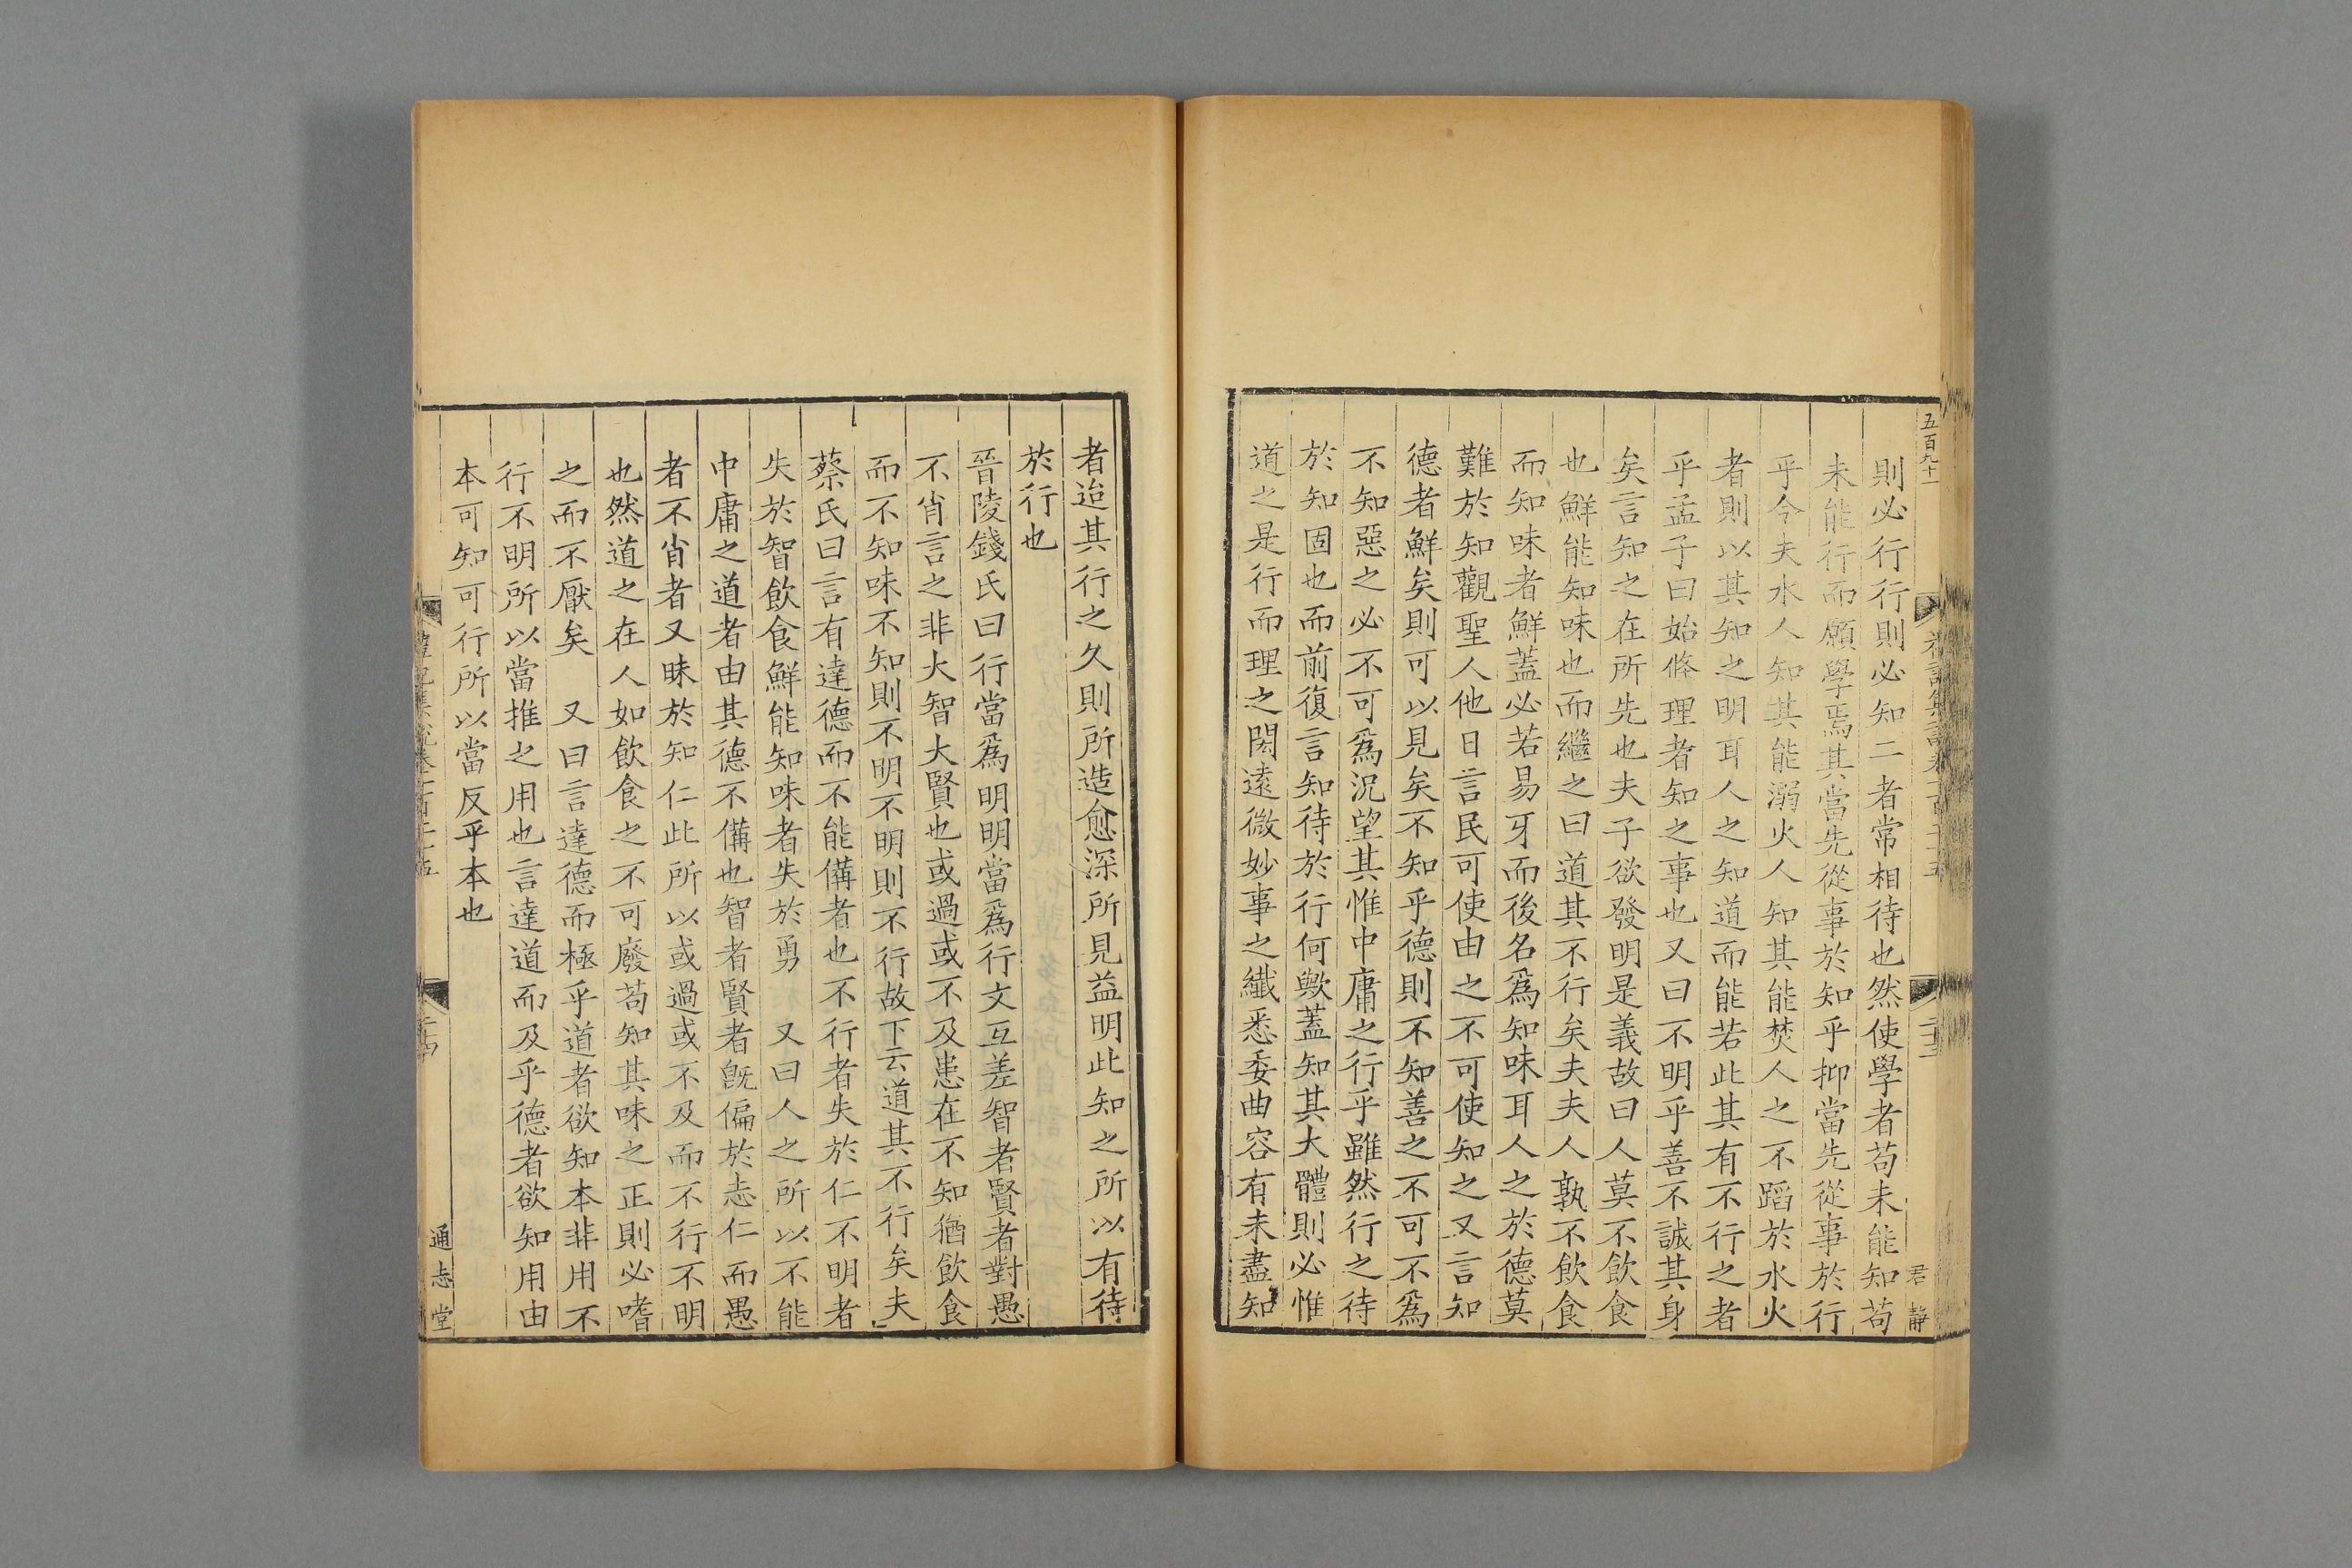 五百九十一
則必行行則必知二者常相待也然使學者苟未能知苟
未能行而願學焉其當先從事於知乎抑當先從事於行
乎今夫水人知其能溺火人知其能焚人之不蹈於水火
者則以其知之明耳人之知道而能若此其有不行之者
乎孟子曰始條理者知之事也又曰不明乎善不誠其身
矣言知之在所先也夫子欲發明是義故曰人莫不飲食
也鮮能知味也而繼之曰道其不行矣夫夫人孰不飲食
而知味者鮮蓋必若易牙而後名爲知味耳人之於德莫
難於知觀聖人他日言民可使由之不可使知之又言知
德者鮮矣則可以見矣不知乎德則不知善之不可不爲
不知惡之必不可爲況望其惟中庸之行乎雖然行之待
於知固也而前復言知待於行何歟蓋知其大體則必惟
道之是行而理之閎遠微妙事之纖悉委曲容有未盡知
君靜
者迨其行之久則所造愈深所見益明此知之所以有待
於行也
晉陵錢氏曰行當爲明明當爲行文互差智者賢者對愚
不肖言之非大智大賢也或過或不及患在不知猶飲食
而不知味不知則不明不明則不行故下云道其不行矣夫
蔡氏曰言有達德而不能備者也不行者失於仁不明者
失於智飲食鮮能知味者失於勇　又曰人之所以不能
中庸之道者由其德不備也智者賢者旣偏於志仁而愚
者不肖者又昧於知仁此所以或過或不及而不行不明
也然道之在人如飲食之不可廢苟知其味之正則必嗜
之而不厭矣　又曰言達德而極乎道者欲知本非用不
行不明所以當推之用也言達道而及乎德者欲知用由
本可知可行所以當反乎本也
通志堂